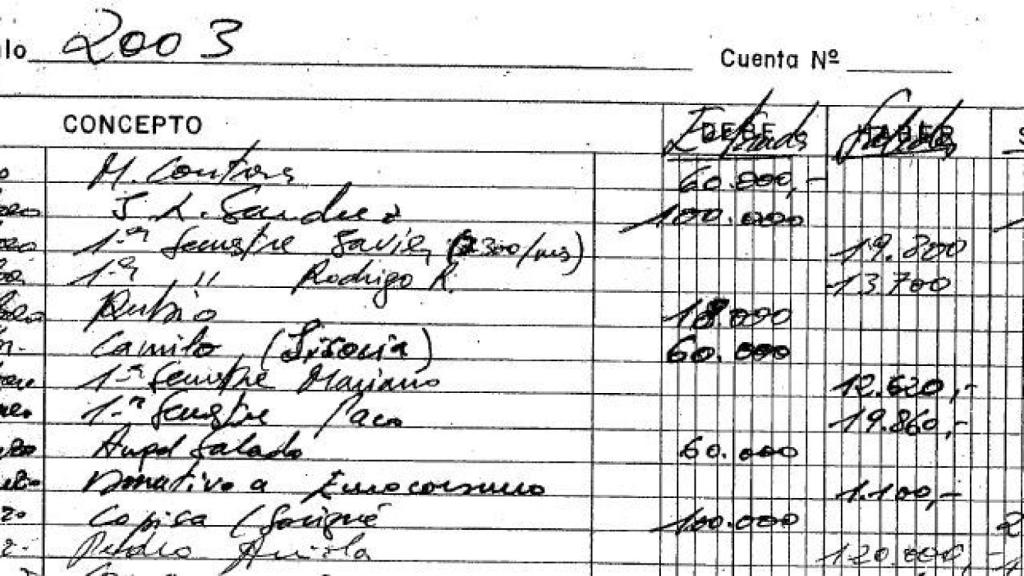 lo 2003 Cuenta Nº
CONCEPTO DEBE Entradas HABER Salidas S
M. Contreras 60.000,-
J. L. Sanchez 100.000
1.er Semestre Javier (3.300/mes) 19.800
1.er " Rodrigo R. 13.700
Rubio 18.000
Camilo (Licuas) 60.000
1.er Semestre Mariano 12.620,-
1.er Semestre Paco 19.860,-
Angel Salado 60.000
Donativo a 1.100,-
Copisa ( 100.000 2
Pedro Arriola 120.000,-